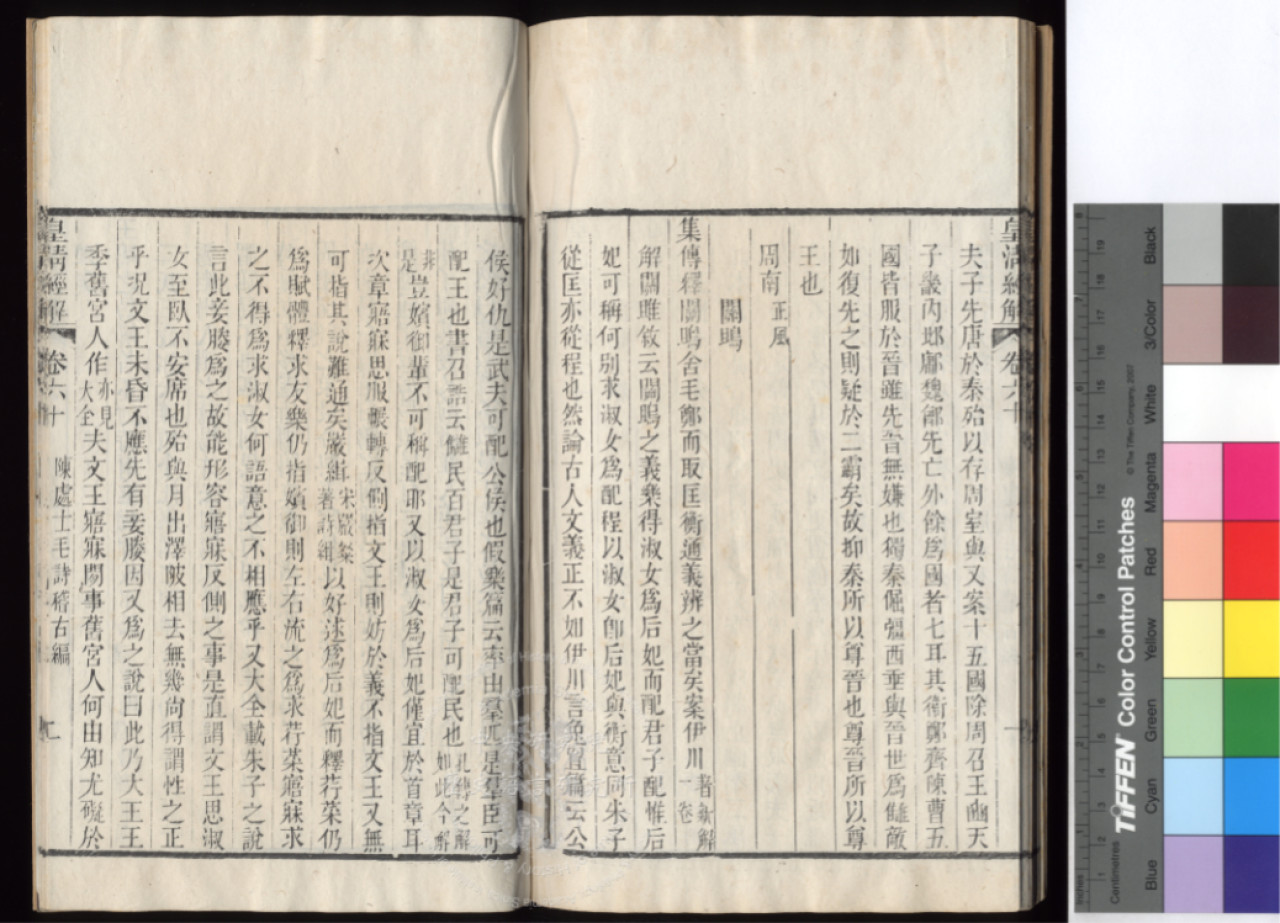 皇清經解 卷六十
夫子先唐於秦殆以存周室與又案十五國除周召王豳天
子畿內邶鄘魏鄶先亡外餘爲國者七耳其衛鄭齊陳曹五
國皆服於晉雖先晉無嫌也獨秦倔彊西垂與晉世爲讎敵
如復先之則疑於二霸矣故抑秦所以尊晉也尊晉所以尊
王也
周南 正風
關鴡
集傳釋關鴡舍毛鄭而取匡衡通義辨之當矣案伊川著新解一卷
解關雎敘云關鴡之義樂得淑女爲后妃而配君子配惟后
妃可稱何別求淑女爲配程以淑女卽后妃與衡意同朱子
從匡亦從程也然論古人文義正不如伊川言兔罝篇云公
侯好仇是武夫可配公侯也假樂篇云率由羣匹是羣臣可
配王也書召誥云讎民百君子是君子可配民也孔傳之解如此今解
非是豈嬪御輩不可稱配耶又以淑女爲后妃僅宜於首章耳
次章寤寐思服輾轉反側指文王則妨於義不指文王又無
可指其說難通矣嚴緝宋嚴粲著詩緝以好逑爲后妃而釋荇菜仍
爲賦體釋求友樂仍指嬪御則左右流之爲求荇菜寤寐求
之不得爲求淑女何語意之不相應乎又大全載朱子之說
言此妾媵爲之故能形容寤寐反側之事是直謂文王思淑
女至臥不安席也殆與月出澤陂相去無幾尙得謂性之正
乎況文王未昏不應先有妾媵因又爲之說曰此乃大王王
季舊宮人作亦見大全夫文王寤寐閒事舊宮人何由知尤礙於
皇清經解 卷六十 陳處士毛詩稽古編
Centimetres
Inches
TIFFEN Color Control Patches
© The Tiffen Company, 2007
Blue
Cyan
Green
Yellow
Red
Magenta
White
3/Color
Black